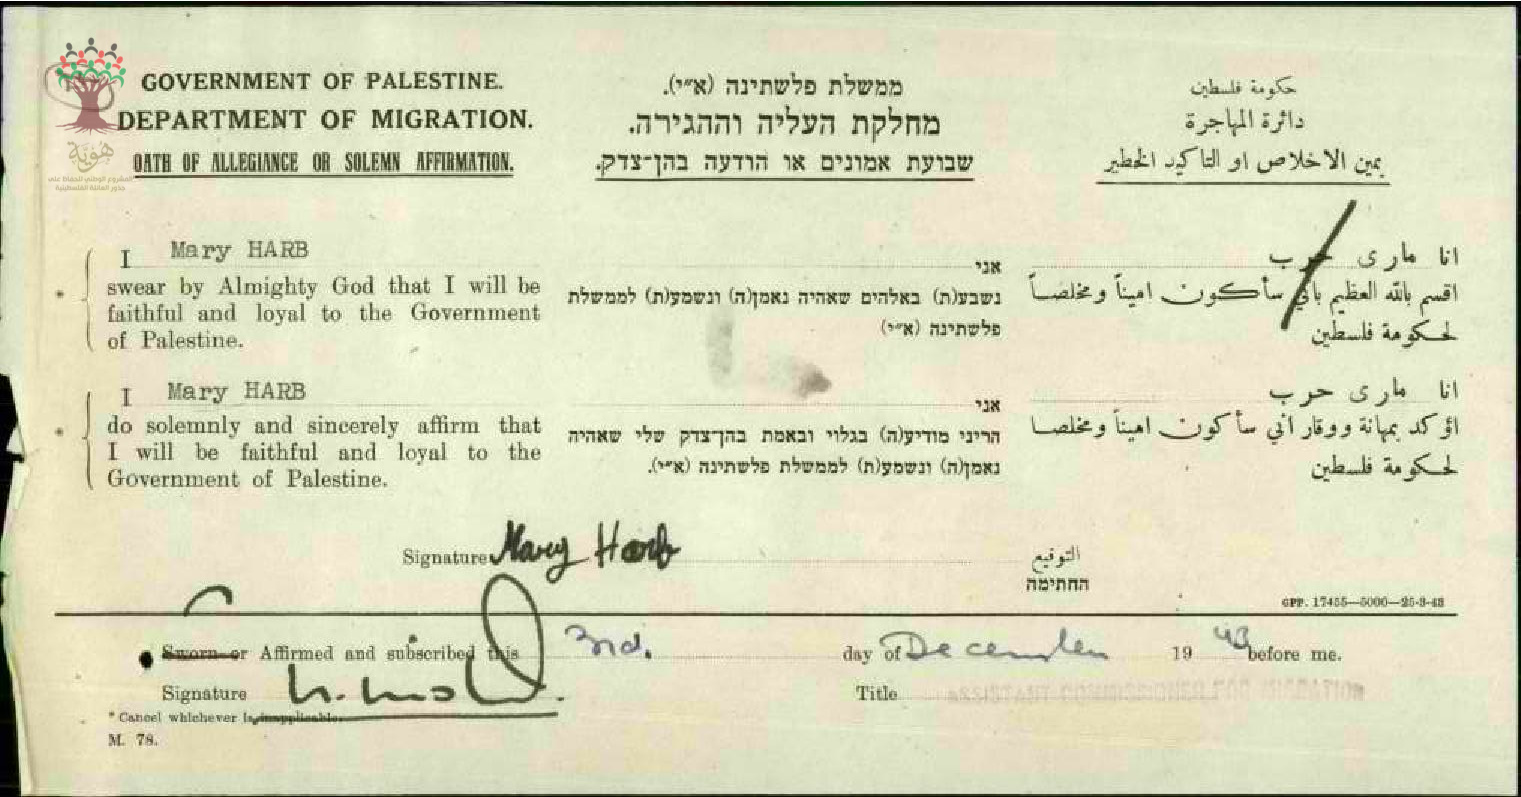 GOVERNMENT OF PALESTINE.
DEPARTMENT OF MIGRATION.
OATH OF ALLEGIANCE OR SOLEMN AFFIRMATION.
ממשלת פלשתינה (א״י).
מחלקת העליה וההגירה.
שבועת אמונים או הודעה בהן־צדק.
حكومة فلسطين
دائرة المهاجرة
يمين الاخلاص او التاكيد الخطير
هوية
المشروع الوطني للحفاظ على
جذور العائلة الفلسطينية
I Mary HARB
swear by Almighty God that I will be
faithful and loyal to the Government
of Palestine.
אני
נשבע(ת) באלהים שאהיה נאמן(ה) ונשמע(ת) לממשלת
פלשתינה (א״י)
انا مارى حرب
اقسم بالله العظيم باني سأكون اميناً ومخلصاً
لحكومة فلسطين
I Mary HARB
do solemnly and sincerely affirm that
I will be faithful and loyal to the
Government of Palestine.
אני
הריני מודיע(ה) בגלוי ובאמת בהן־צדק שלי שאהיה
נאמן(ה) ונשמע(ת) לממשלת פלשתינה (א״י).
انا مارى حرب
اؤكد بمهانة ووقار اني سأكون اميناً ومخلصا
لحكومة فلسطين
Signature Mary Harb التوقيع
החתימה
GPP. 17455—5000—25-3-43
Sworn or Affirmed and subscribed this 3rd. day of December 19 43 before me.
Signature
Title
* Cancel whichever is inapplicable.
M. 78.